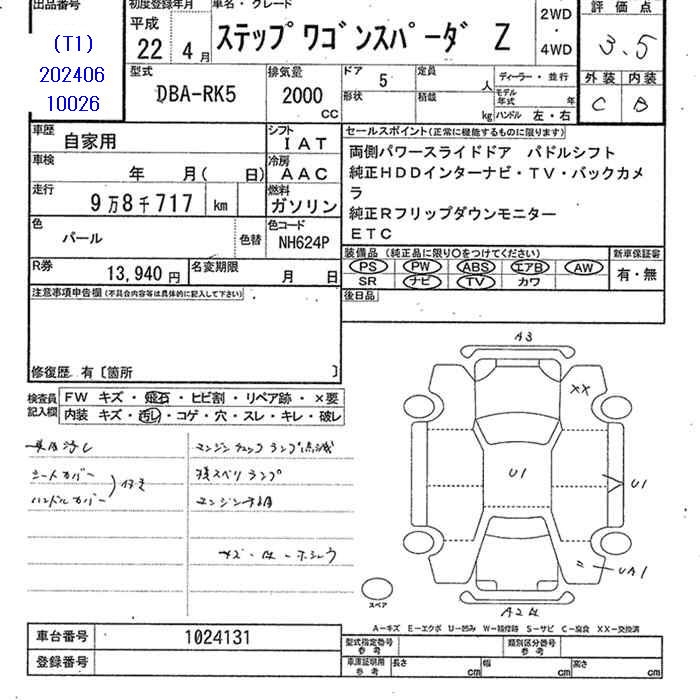 出品番号
(T1)
202406
10026
初度登録年月
平成
22 年 4 月
車名・グレード
ステップワゴンスパーダ Z
2WD
・
4WD
評価点
3.5
型式
DBA-RK5
排気量
2000
cc
ドア 5
形状
定員 人
積載 kg
ディーラー・並行
モデル年式 年
ハンドル 左・右
外装 内装
C B
車歴
自家用
シフト
IAT
車検
年 月( 日)
冷房
AAC
走行
9万8千717 km
燃料
ガソリン
色
パール
色替
色コード
NH624P
R券
13,940 円
名変期限
月 日
セールスポイント(正常に機能するものに限ります)
両側パワースライドドア パドルシフト
純正HDDインターナビ・TV・バックカメ
ラ
純正Rフリップダウンモニター
ETC
装備品 (純正品に限り○をつけてください)
PS PW ABS エアB AW
SR ナビ TV カワ
新車保証書
有・無
後日品
注意事項申告欄(不具合内容等は具体的に記入して下さい)
修復歴 有〔箇所 〕
検査員
記入欄
FW キズ・飛石・ヒビ割・リペア跡・×要
内装 キズ・汚レ・コゲ・穴・スレ・キレ・破レ
シートカバー
ハンドルカバー
付き
エンジンチェックランプ点滅
横スベリランプ
A3
XX
U1
U1
UA1
スペア
A-キズ E-エクボ U-凹み W-補修跡 S-サビ C-腐食 XX-交換済
車台番号
1024131
登録番号
型式指定番号
参考
類別区分番号
参考
車庫証明用
参考
長さ cm
幅 cm
高さ cm